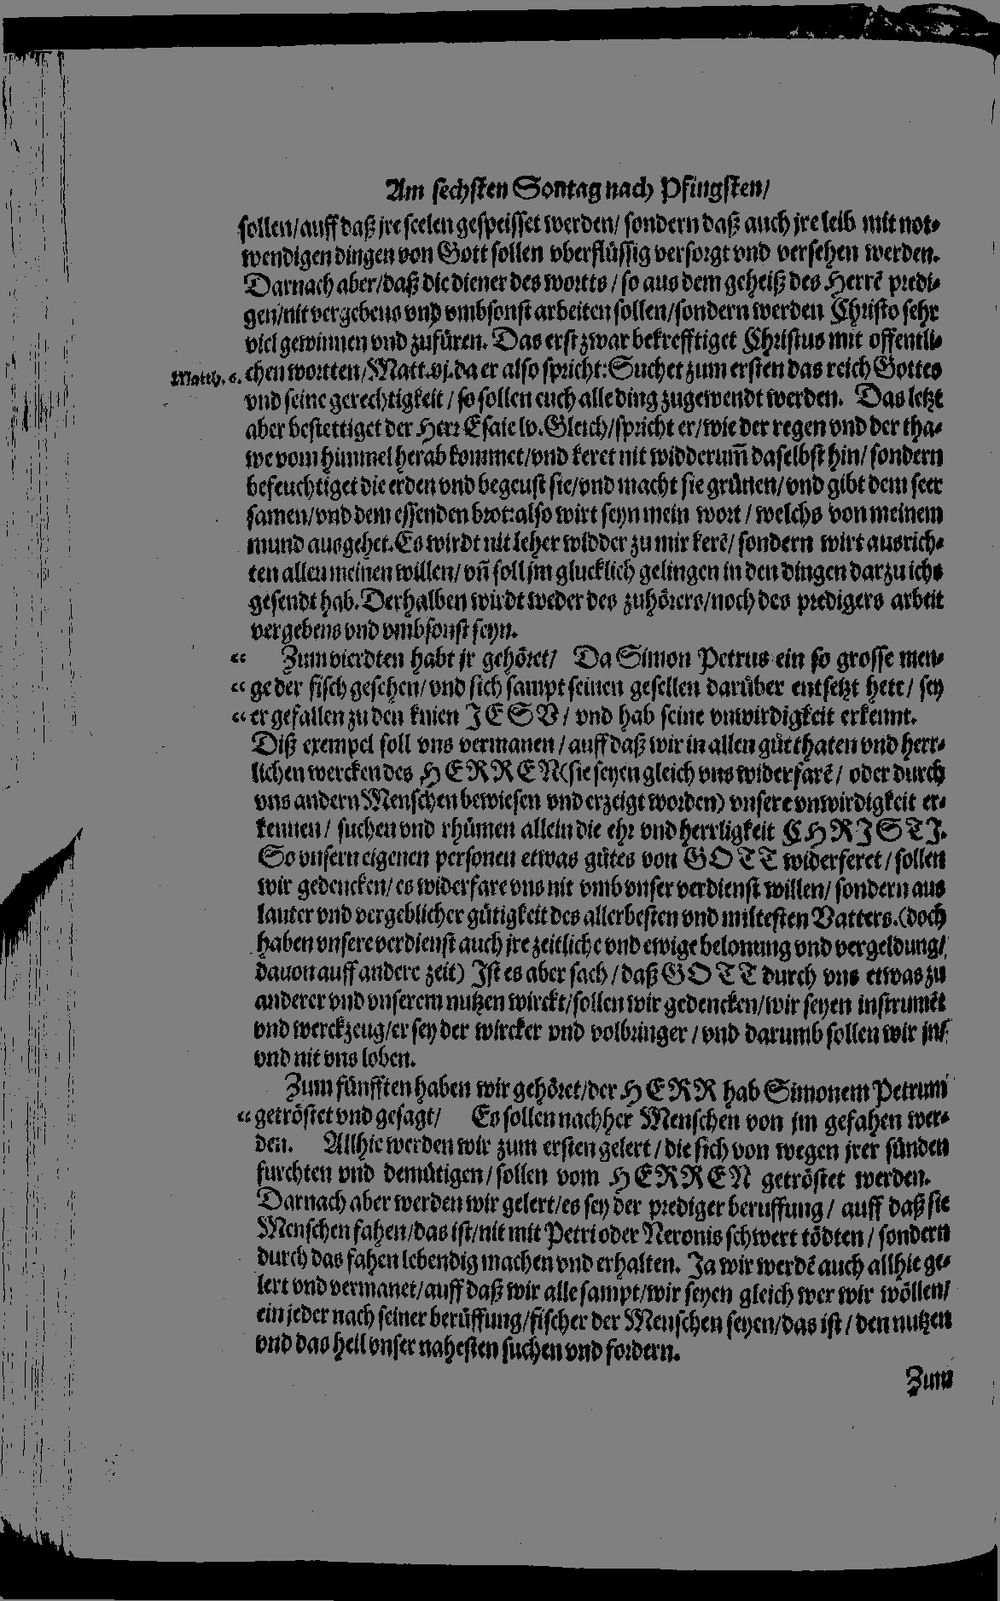 Am sechsten Sontag nach Pfingsten/
sollen/auff daß jre seelen gespeisset werden/ sondern daß auch jre leib mit not⸗
wendigen dingen von Gott sollen vberflüssig versorgt vnd versehen werden.
Darnach aber/daß die diener des wortts / so aus dem geheiß des Herrē predi⸗
gen/nit vergebens vnd vmbsonst arbeiten sollen/sondern werden Christo sehr
viel gewinnen vnd zufüren. Das erst zwar bekrefftiget Christus mit offentli⸗
Matth. 6. chen wortten/Matt.vj.da er also spricht:Suchet zum ersten das reich Gottes
vnd seine gerechtigkeit / so sollen euch alle ding zugewendt werden. Das letzt
aber bestettiget der Herr Esaie lv.Gleich/spricht er/wie der regen vnd der tha⸗
we vom himmel herab kommet/vnd keret nit widderum̄ daselbst hin/ sondern
befeuchtiget die erden vnd begeust sie/vnd macht sie grünen/vnd gibt dem seer
samen/vnd dem essenden brot:also wirt seyn mein wort / welchs von meinem
mund ausgehet.Es wirdt nit leher widder zu mir kerē/ sondern wirt ausrich⸗
ten allen meinen willen/ vn̄ soll jm glucklich gelingen in den dingen darzu ichs
gesendt hab. Derhalben wirdt weder des zuhörers/noch des predigers arbeit
vergebens vnd vmbsonst seyn.
“ Zum vierdten habt jr gehöret/ Da Simon Petrus ein so grosse men⸗
“ ge der fisch gesehen/ vnd sich sampt seinen gesellen darüber entsetzt hett/ sey
“ er gefallen zu den knien JESV/ vnd hab seine vnwirdigkeit erkennt.
Diß exempel soll vns vermanen / auff daß wir in allen gütthaten vnd herr⸗
lichen wercken des HERREN(sie seyen gleich vns widerfarē/ oder durch
vns andern Menschen bewiesen vnd erzeigt worden) vnsere vnwirdigkeit er⸗
kennen/ suchen vnd rhümen allein die ehr vnd herrligkeit CHRISTI.
So vnsern eigenen personen etwas gütes von GOTT widerferet / sollen
wir gedencken/ es widerfare vns nit vmb vnser verdienst willen/ sondern aus
lauter vnd vergeblicher gütigkeit des allerbesten vnd miltesten Vatters.(doch
haben vnsere verdienst auch jre zeitliche vnd ewige belonung vnd vergeldung/
dauon auff andere zeit) Ist es aber sach / daß GOTT durch vns etwas zu
anderer vnd vnserem nutzen wirckt/sollen wir gedencken/wir seyen instrumēt
vnd werckzeug/er sey der wircker vnd volbringer / vnd darumb sollen wir jn/
vnd nit vns loben.
Zum fünfften haben wir gehöret/der HERR hab Simonem Petrum
“ getröstet vnd gesagt/ Es sollen nachher Menschen von jm gefahen wer⸗
den. Allhie werden wir zum ersten gelert / die sich von wegen jrer sünden
furchten vnd demütigen/ sollen vom HERREN getröstet werden.
Darnach aber werden wir gelert/es sey der prediger beruffung / auff daß sie
Menschen fahen/das ist/nit mit Petri oder Neronis schwert tödten / sondern
durch das fahen lebendig machen vnd erhalten. Ja wir werdē auch allhie ge⸗
lert vnd vermanet/auff daß wir alle sampt/wir seyen gleich wer wir wöllen/
ein jeder nach seiner berüffung/fischer der Menschen seyen/das ist / den nutzen
vnd das heil vnser nahesten suchen vnd fordern.
Zum